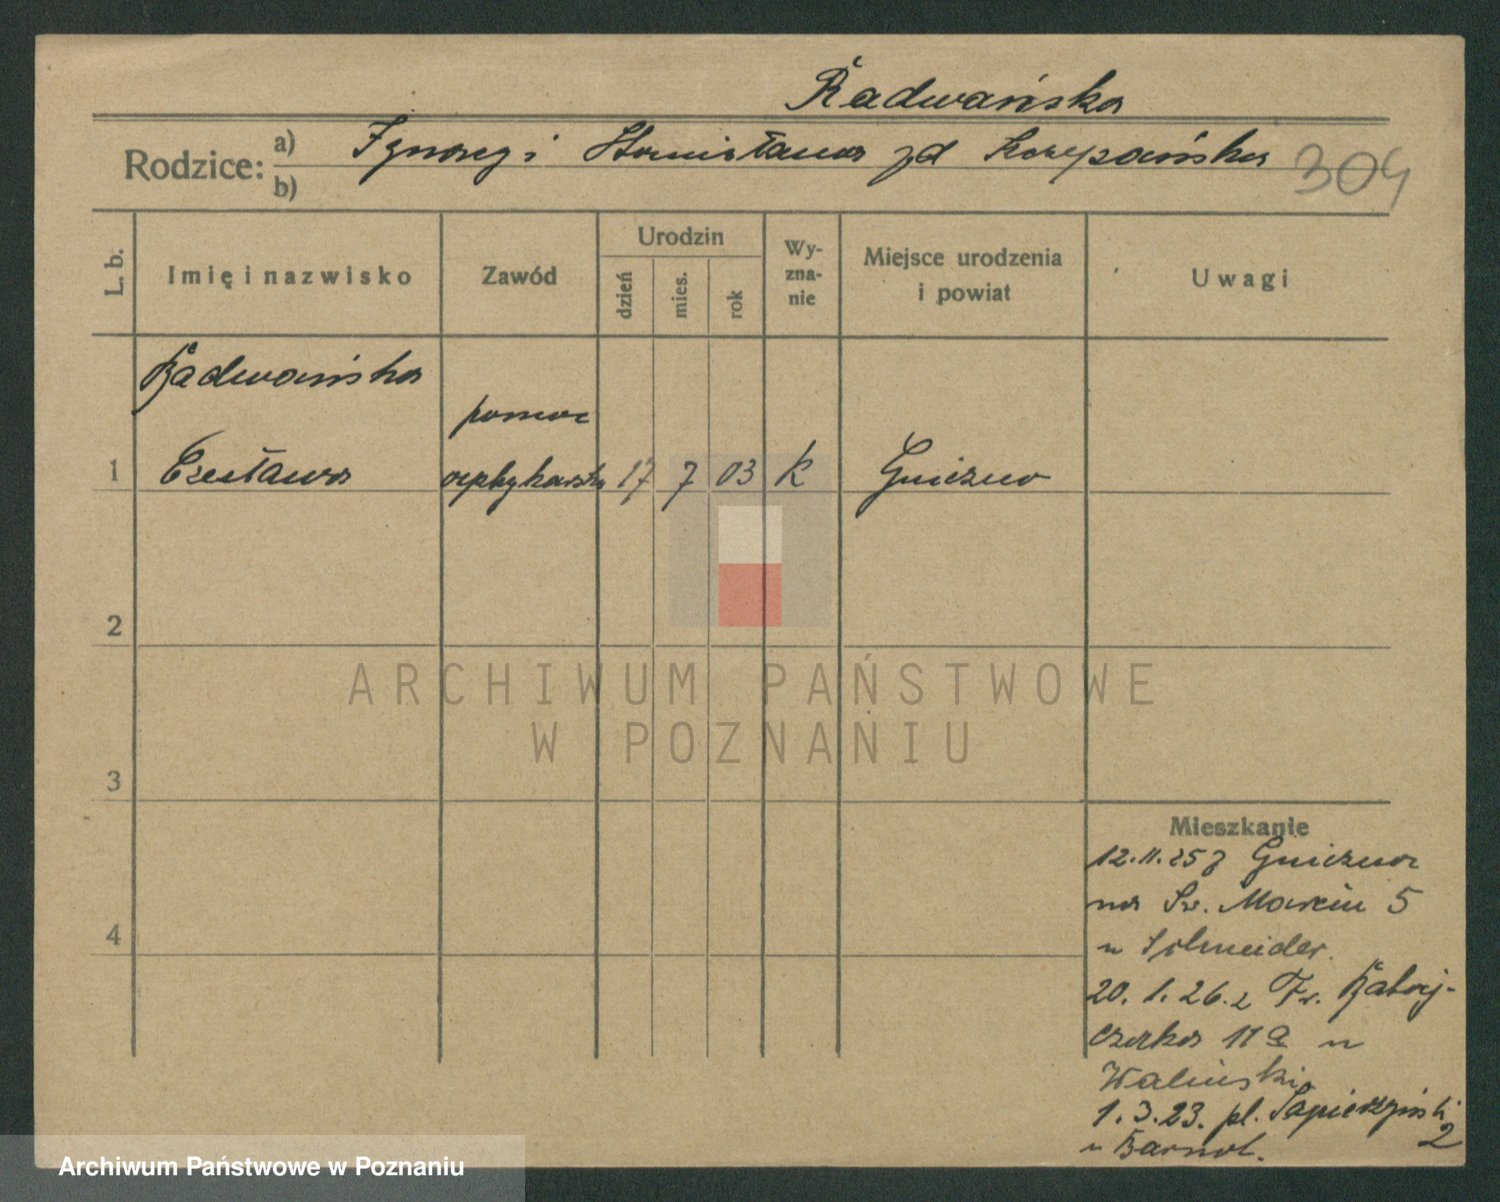 Radwańska
Rodzice: a) Ignacy i Stanisława zd Szczepańska 304
b)
L. b.
Imię i nazwisko
Zawód
Urodzin
dzień
mies.
rok
Wy-
zna-
nie
Miejsce urodzenia
i powiat
Uwagi
Radwańska
pomoc
1 Czesława 17 7 03 K Gniezno
2
ARCHIWUM PAŃSTWOWE
W POZNANIU
3
Mieszkanie
12.11.25 z Gniezna
na Św. Marcin 5
u Schneider.
4
20. 1. 26. z Fr. Rataj-
czaka 11a u
Waliński
1. 3. 23. pl. Sapieżyński
2
u Barnot.
Archiwum Państwowe w Poznaniu